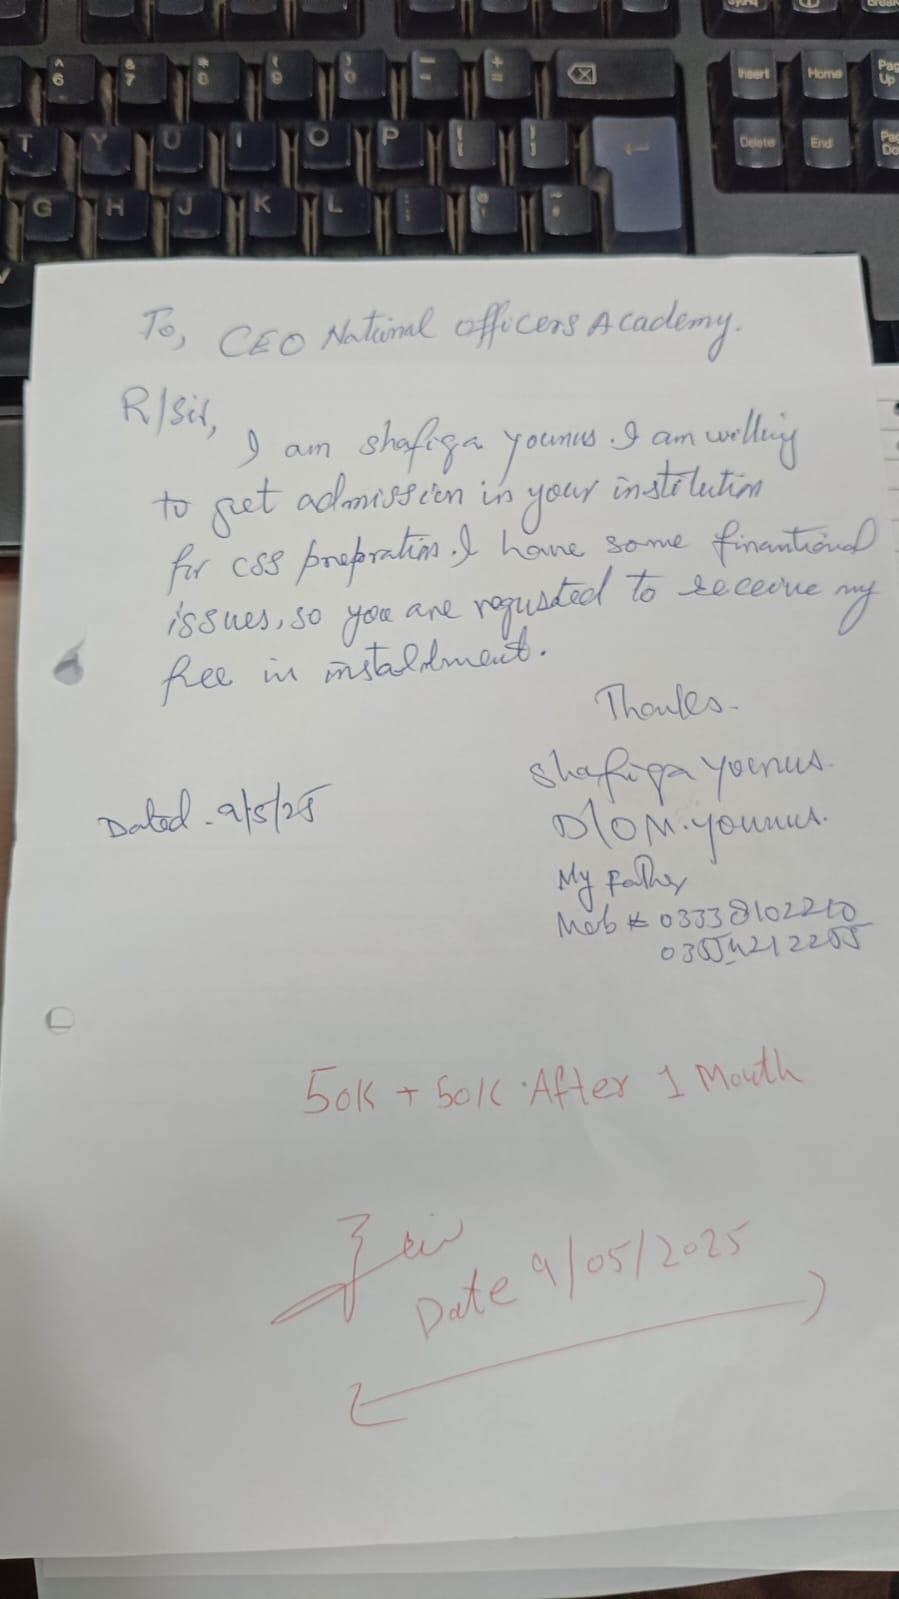 To, CEO National Officers Academy.
R/Sir,
I am shafiqa younus. I am willing
to get admission in your institution
for CSS prepration. I have some finantional
issues, so you are requsted to receive my
fee in installment.
Thanks.
Shafiqa younus.
D/O M. younus.
Dated - 9/5/25
My Father
Mob # 03338102210
50K + 50K After 1 Month
Date 9/05/2025
^ 6 & 7 * 8 ( 9 ) 0 - + =
Insert Home Page Up
T Y U I O P { [ } ]
Delete End
G H J K L